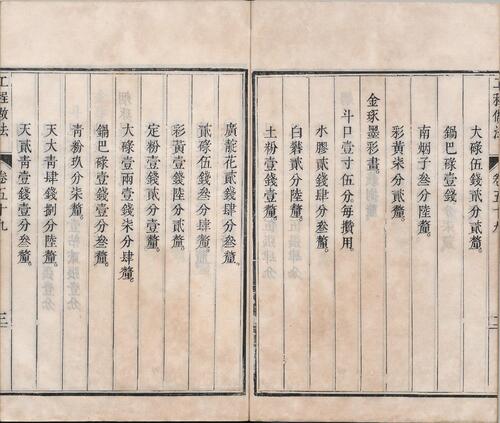 大碌伍錢貳分叁釐。
鍋巴碌壹錢。
南烟子叁分陸釐。
彩黃柒分貳釐。
金琢墨彩畫。
斗口壹寸伍分每攢用。
水膠貳錢肆分肆釐。
白礬貳分陸釐。
土粉壹錢壹釐。
工程做法 卷五十九 二
廣靛花貳錢肆分貳釐。
貳碌伍錢叁分肆釐。
彩黃壹錢陸分貳釐。
定粉壹錢貳分壹釐。
大碌壹兩壹錢柒分肆釐。
鍋巴碌壹錢壹分叁釐。
青粉玖分柒釐。
天大青肆錢捌分陸釐。
天貳青壹錢壹分叁釐。
工程做法 卷五十九 三